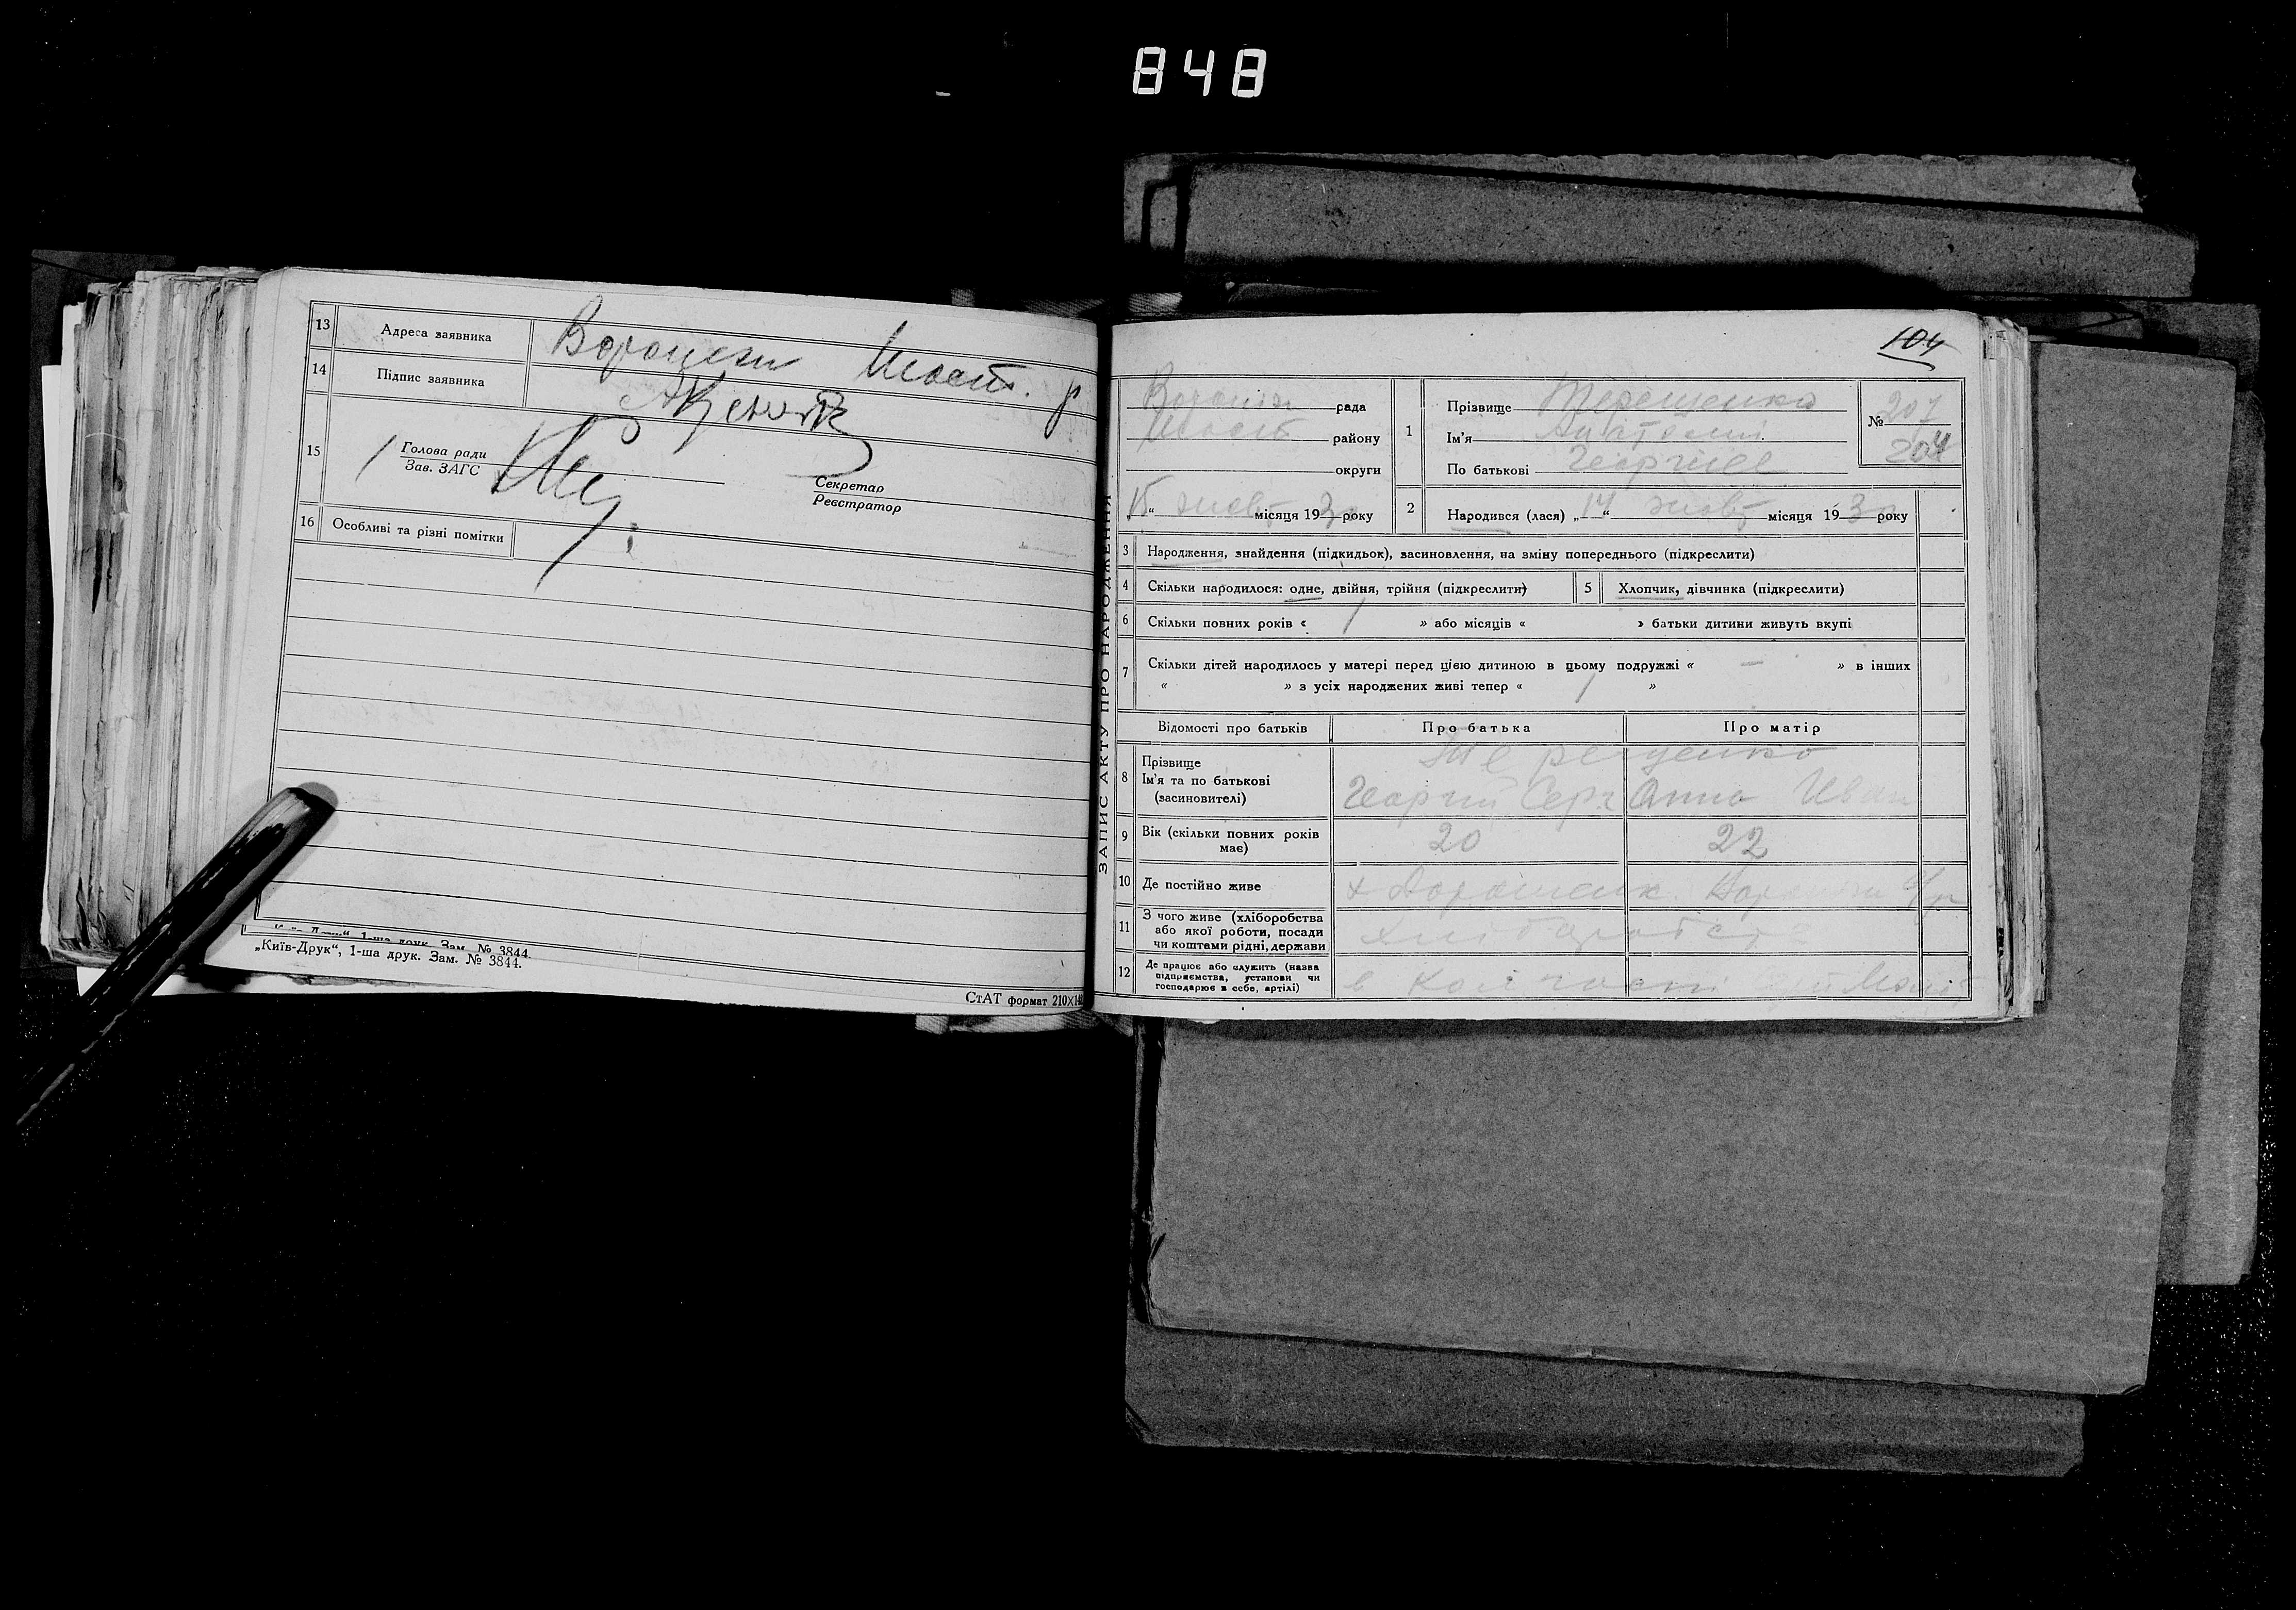 848
13 Адреса заявника Шост. р
14 Підпис заявника
15 Голова ради
Зав. ЗАГС
Секретар
Реєстратор
16 Особливі та різні помітки
„Київ-Друк“, 1-ша друк. Зам. № 3844.
„Київ-Друк“, 1-ша друк. Зам. № 3844.
СтАТ формат 210×148
104
ЗАПИС АКТУ ПРО НАРОДЖЕННЯ
рада
Шост району
округи
„15“ жовт місяця 193 року
1 Прізвище Терещенко
Ім'я Анатолій
По батькові Георгіев
№ 207
204
2 Народився (лася) „14“ жовт місяця 1930 року
3 Народження, знайдення (підкидьок), засиновлення, на зміну попереднього (підкреслити)
4 Скільки народилося: одне, двійня, трійня (підкреслити)
5 Хлопчик, дівчинка (підкреслити)
6 Скільки повних років « 1 » або місяців « » батьки дитини живуть вкупі
7 Скільки дітей народилось у матері перед цією дитиною в цьому подружжі « — » в інших
« » з усіх народжених живі тепер « 1 »
Відомості про батьків Про батька Про матір
8 Прізвище Терещенко
Ім'я та по батькові Георгий Серг Анна Иван
(засиновителі)
9 Вік (скільки повних років має) 20 22
10 Де постійно живе х
11 З чого живе (хліборобства
або якої роботи, посади
чи коштами рідні, держави хліборобств
12 Де працює або служить (назва
підприємства, установи чи
господарює в себе, артілі) в